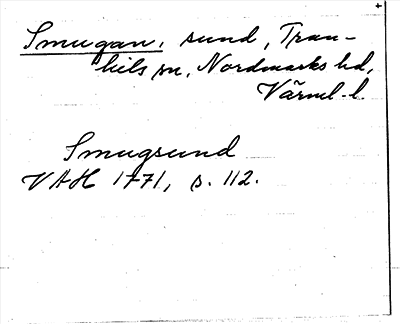 Smugan, sund, Tran-
kils sn, Nordmarks hd,
Värml. l.
Smugsund
VAH 1771, s. 112.